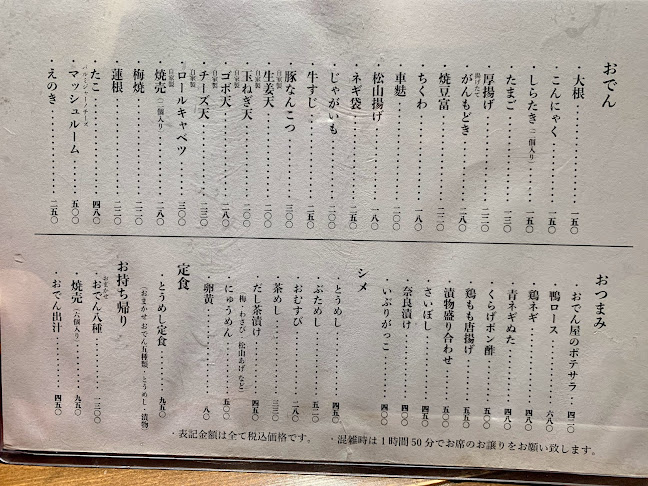 おでん
・大根・・・・・・・・・一五〇
・こんにゃく・・・・・・・・・一五〇
・しらたき（二個入り）・・・・・・一五〇
・たまご・・・・・・・・・一三〇
・厚揚げ・・・・・・・・・二二〇
揚げたて
・がんもどき・・・・・・・・・二八〇
・焼豆富・・・・・・・・・一八〇
・ちくわ・・・・・・・・・一八〇
・車麩・・・・・・・・・二〇〇
・松山揚げ・・・・・・・・・一八〇
・ネギ袋・・・・・・・・・二五〇
・じゃがいも・・・・・・・・・二〇〇
・牛すじ・・・・・・・・・二五〇
・豚なんこつ・・・・・・・・・三〇〇
自家製
・生姜天・・・・・・・・・二〇〇
自家製
・玉ねぎ天・・・・・・・・・二五〇
自家製
・ゴボ天・・・・・・・・・二八〇
自家製
・チーズ天・・・・・・・・・二三〇
・ロールキャベツ・・・・・・・・・三〇〇
自家製
・焼売（一個入り）・・・・・・一八〇
・梅焼・・・・・・・・・二二〇
・蓮根・・・・・・・・・二二〇
・たこ・・・・・・・・・四八〇
パルミジャーノチーズ
・マッシュルーム・・・・・・・・・五〇〇
・えのき・・・・・・・・・二五〇
おつまみ
・おでん屋のポテサラ・・・・四二〇
・鴨ロース・・・・・・・・・六八〇
・鶏ネギ・・・・・・・・・四八〇
・青ネギぬた・・・・・・・・・四八〇
・くらげポン酢・・・・・・・・・五〇〇
・鶏もも唐揚げ・・・・・・・・・五五〇
・漬物盛り合わせ・・・・・・五五〇
・さいぼし・・・・・・・・・五五〇
・奈良漬け・・・・・・・・・四〇〇
・いぶりがっこ・・・・・・・・・四〇〇
シメ
・とうめし・・・・・・・・・四五〇
・ぶためし・・・・・・・・・五二〇
・おむすび・・・・・・・・・二八〇
・茶めし・・・・・・・・・二三〇
・だし茶漬け・・・・・・・・・四五〇
（梅・わさび・松山あげなど）
・にゅうめん・・・・・・・・・五〇〇
・卵黄・・・・・・・・・八〇
定食
・とうめし定食・・・・・・・・・九五〇
（おまかせおでん五種類・とうめし・漬物）
お持ち帰り
おまかせ
・おでん八種・・・・・・・・・一三〇〇
・焼売（六個入り）・・・・・・九五〇
・おでん出汁・・・・・・・・・四五〇
・表記金額は全て税込価格です。　・混雑時は1時間50分でお席のお譲りをお願い致します。